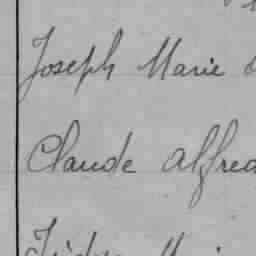 Joseph Marie
Claude Alfred